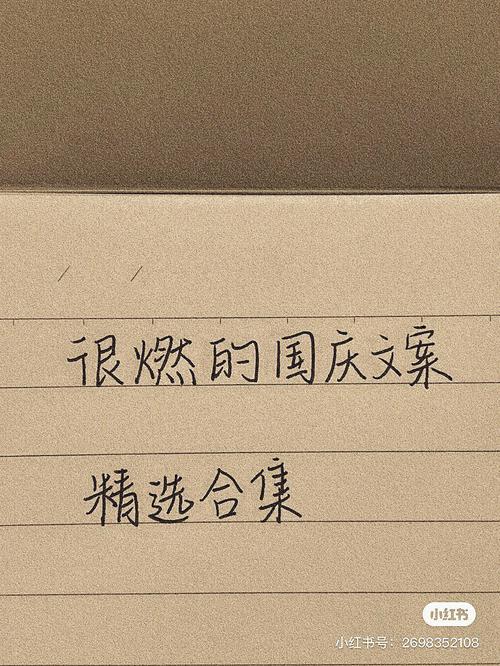 很燃的国庆文案
精选合集
小红书
小红书号：2698352108